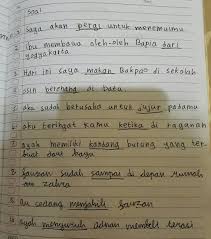 Soal
1 Saya akan pergi untuk menemuimu
2 ibu membawa oleh-oleh Bapia dari
yogyakarta
3 Hari ini saya makan Bakpao di sekolah
osin berenang di
5 aku sudah berusaha untuk jujur padamu
6. aku teringat kamu ketika di
7 ayah memiliki kandang burung yang ter
buat dari kayu
8 fauzan sudah sampai di depan rumah
zahra
9 au sedang menjahili fauzan
10 ayah menyuruh adnan membeli terasi